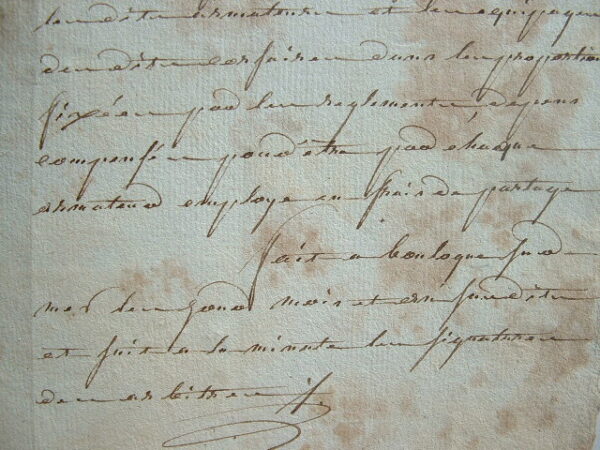 lesdits armateurs et les equipages
desdits corsaires dans les proportions
fixées par les reglements, depens
compensés pour être par chaque
armateur employé en frais de partage
fait a boulogne sur
mer les jour mois et an susdits
et suit a la minute les signatures
des arbitres